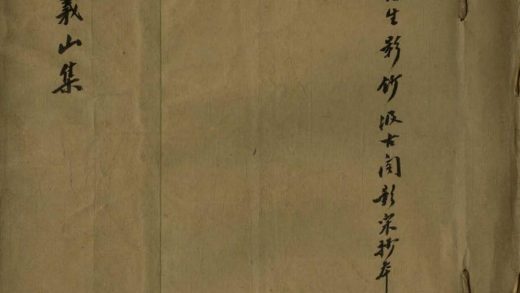 生影鈔汲古閣影宋抄本
義山集